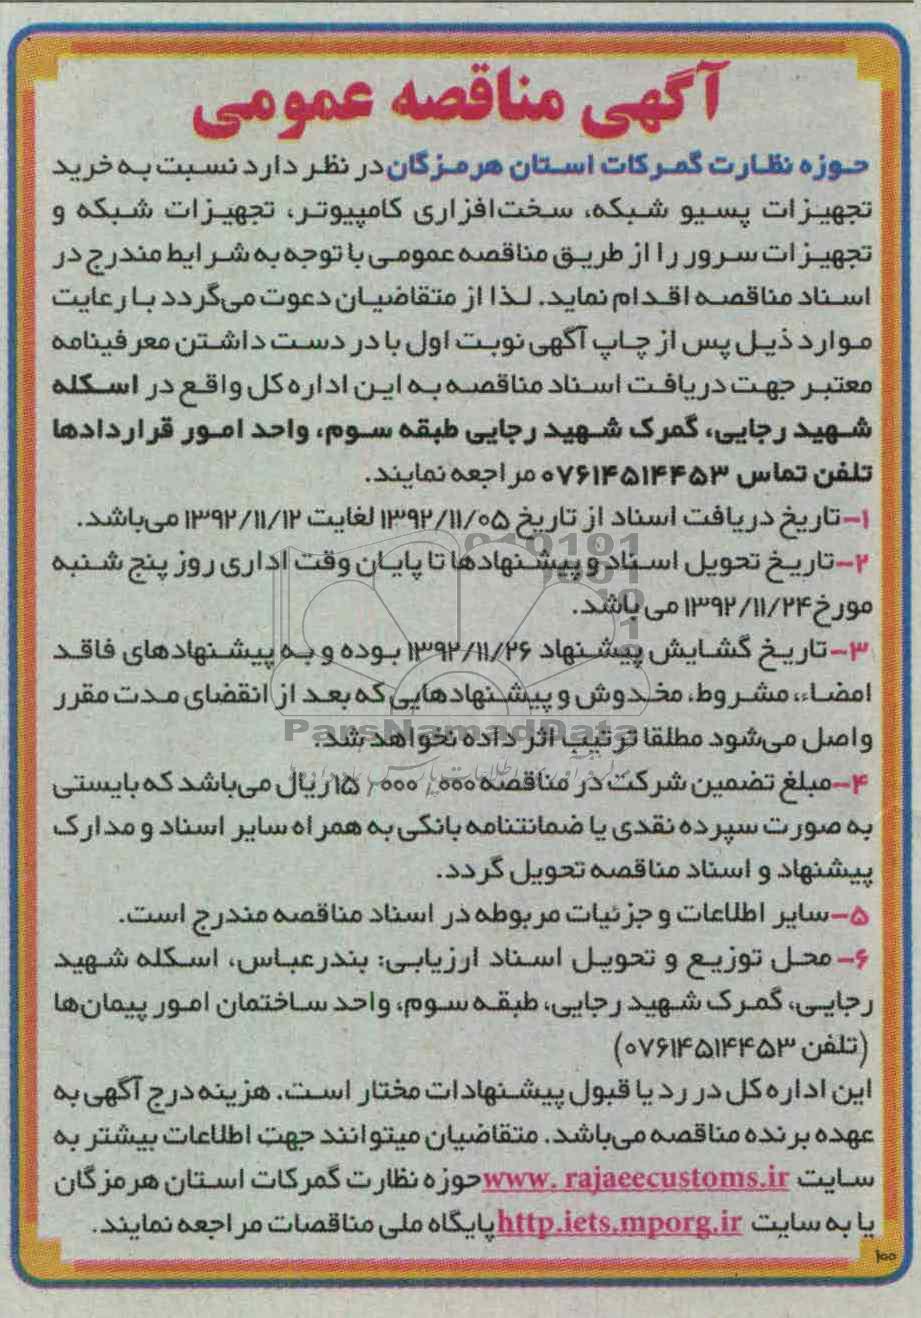 آگهی مناقصه عمومی
حوزه نظارت گمرکات استان هرمزگان در نظر دارد نسبت به خرید
تجهیزات پسیو شبکه، سخت‌افزاری کامپیوتر، تجهیزات شبکه و
تجهیزات سرور را از طریق مناقصه عمومی با توجه به شرایط مندرج در
اسناد مناقصه اقدام نماید. لذا از متقاضیان دعوت می‌گردد با رعایت
موارد ذیل پس از چاپ آگهی نوبت اول با در دست داشتن معرفینامه
معتبر جهت دریافت اسناد مناقصه به این اداره کل واقع در اسکله
شهید رجایی، گمرک شهید رجایی طبقه سوم، واحد امور قراردادها
تلفن تماس ۰۷۶۱۴۵۱۴۴۵۳ مراجعه نمایند.
۱-تاریخ دریافت اسناد از تاریخ ۱۳۹۲/۱۱/۰۵ لغایت ۱۳۹۲/۱۱/۱۲ می‌باشد.
۲-تاریخ تحویل اسناد و پیشنهادها تا پایان وقت اداری روز پنج شنبه
مورخ ۱۳۹۲/۱۱/۲۴ می باشد.
۳-تاریخ گشایش پیشنهاد ۱۳۹۲/۱۱/۲۶ بوده و به پیشنهادهای فاقد
امضاء، مشروط، مخدوش و پیشنهادهایی که بعد از انقضای مدت مقرر
واصل می‌شود مطلقا ترتیب اثر داده نخواهد شد.
ParsNamadData
۴-مبلغ تضمین شرکت در مناقصه ۱۵۰۰۰۰۰۰۰ ریال می‌باشد که بایستی
به صورت سپرده نقدی یا ضمانتنامه بانکی به همراه سایر اسناد و مدارک
پیشنهاد و اسناد مناقصه تحویل گردد.
۵-سایر اطلاعات و جزئیات مربوطه در اسناد مناقصه مندرج است.
۶- محل توزیع و تحویل اسناد ارزیابی: بندرعباس، اسکله شهید
رجایی، گمرک شهید رجایی، طبقه سوم، واحد ساختمان امور پیمان‌ها
(تلفن ۰۷۶۱۴۵۱۴۴۵۳)
این اداره کل در رد یا قبول پیشنهادات مختار است. هزینه درج آگهی به
عهده برنده مناقصه می‌باشد. متقاضیان میتوانند جهت اطلاعات بیشتر به
سایت www. rajaeecustoms.ir حوزه نظارت گمرکات استان هرمزگان
یا به سایت http.iets.mporg.ir پایگاه ملی مناقصات مراجعه نمایند.
۱۰۰